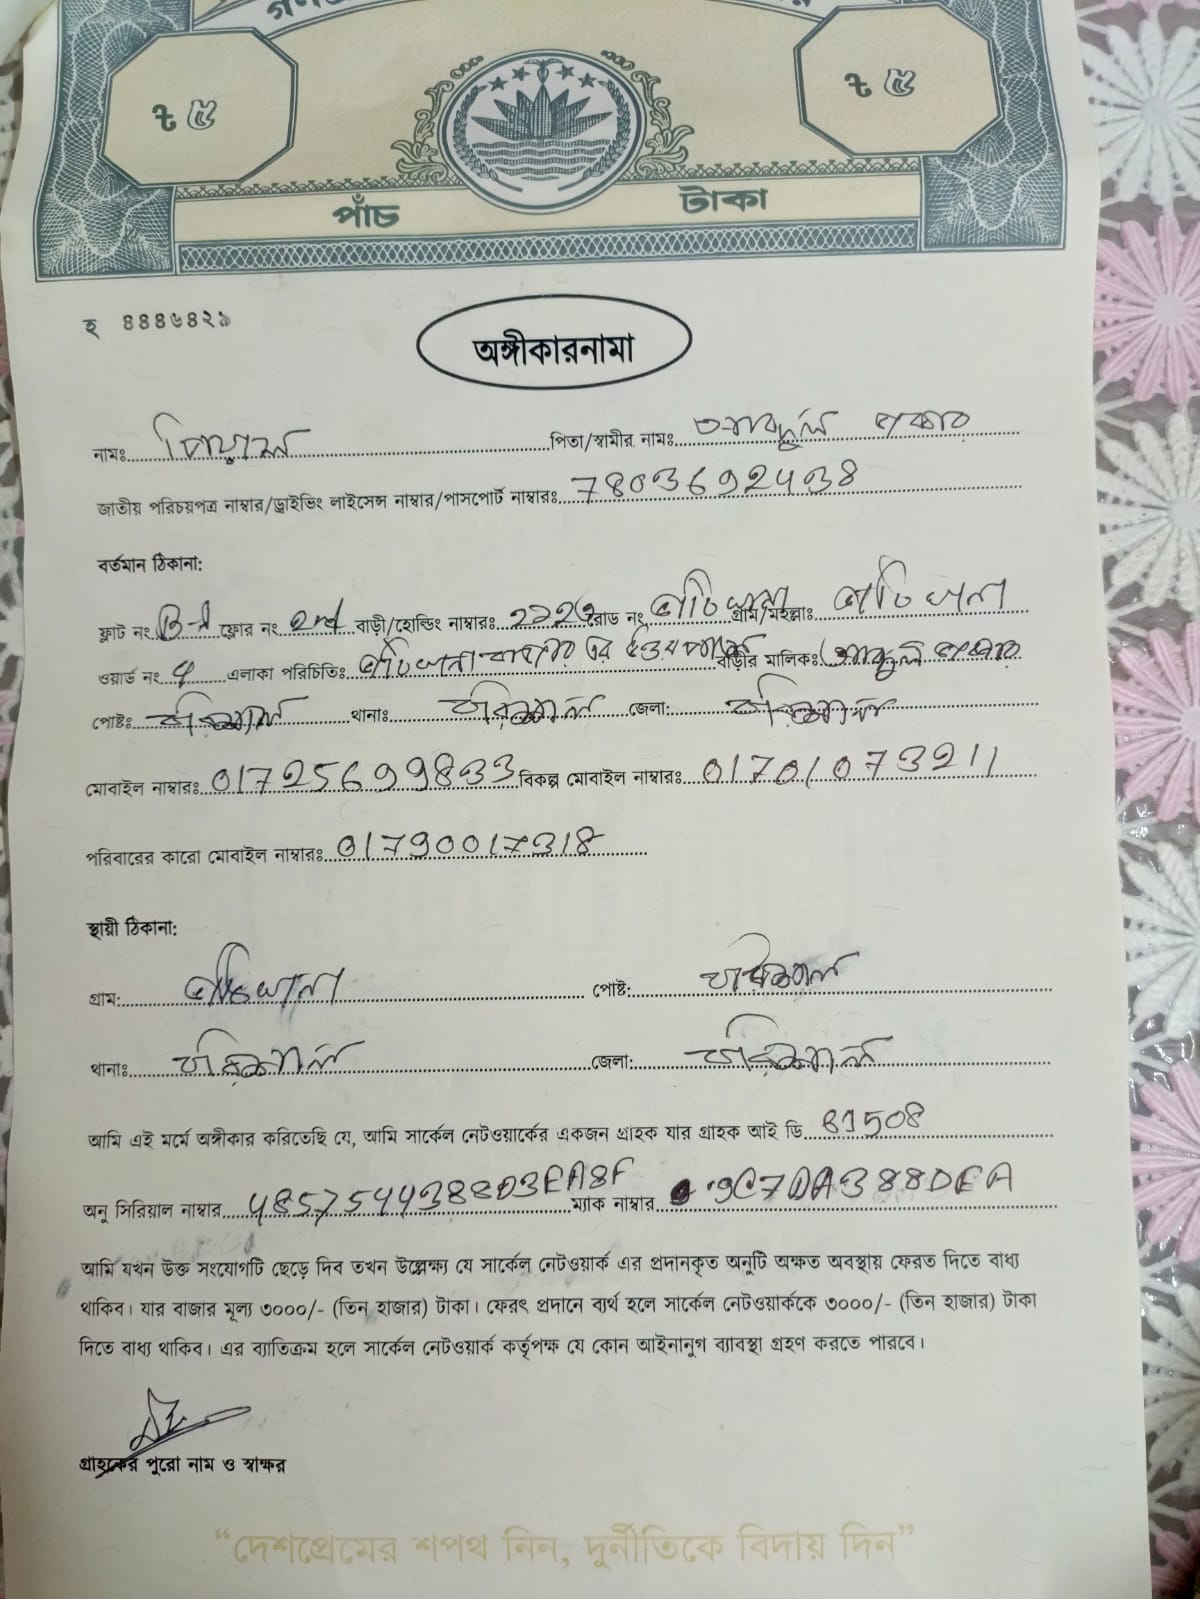 ৳ ৫ ৳ ৫
পাঁচ টাকা
হ ৪৪৪৬৪২৯
অঙ্গীকারনামা
নামঃ পিতা/স্বামীর নামঃ
জাতীয় পরিচয়পত্র নাম্বার/ড্রাইভিং লাইসেন্স নাম্বার/পাসপোর্ট নাম্বারঃ 7803692438
বর্তমান ঠিকানা:
ফ্লাট নং B-A ফ্লোর নং 2nd বাড়ী/হোল্ডিং নাম্বারঃ রোড নং গ্রাম/মহল্লাঃ
ওয়ার্ড নং 4 এলাকা পরিচিতিঃ বাড়ীর মালিকঃ
পোষ্টঃ বরিশাল থানাঃ বরিশাল জেলা: বরিশাল
মোবাইল নাম্বারঃ 01725699833 বিকল্প মোবাইল নাম্বারঃ 01701073211
পরিবারের কারো মোবাইল নাম্বারঃ 01790017318
স্থায়ী ঠিকানা:
গ্রাম: পোষ্ট: বরিশাল
থানাঃ বরিশাল জেলা: বরিশাল
আমি এই মর্মে অঙ্গীকার করিতেছি যে, আমি সার্কেল নেটওয়ার্কের একজন গ্রাহক যার গ্রাহক আই ডি 81508
অনু সিরিয়াল নাম্বার 4857544388D3EA8F ম্যাক নাম্বার 9C7DA388DEA
আমি যখন উক্ত সংযোগটি ছেড়ে দিব তখন উল্লেক্ষ্য যে সার্কেল নেটওয়ার্ক এর প্রদানকৃত অনুটি অক্ষত অবস্থায় ফেরত দিতে বাধ্য
থাকিব। যার বাজার মূল্য ৩০০০/- (তিন হাজার) টাকা। ফেরৎ প্রদানে ব্যর্থ হলে সার্কেল নেটওয়ার্ককে ৩০০০/- (তিন হাজার) টাকা
দিতে বাধ্য থাকিব। এর ব্যতিক্রম হলে সার্কেল নেটওয়ার্ক কর্তৃপক্ষ যে কোন আইনানুগ ব্যাবস্থা গ্রহণ করতে পারবে।
গ্রাহকের পুরো নাম ও স্বাক্ষর
“দেশপ্রেমের শপথ নিন, দুর্নীতিকে বিদায় দিন”